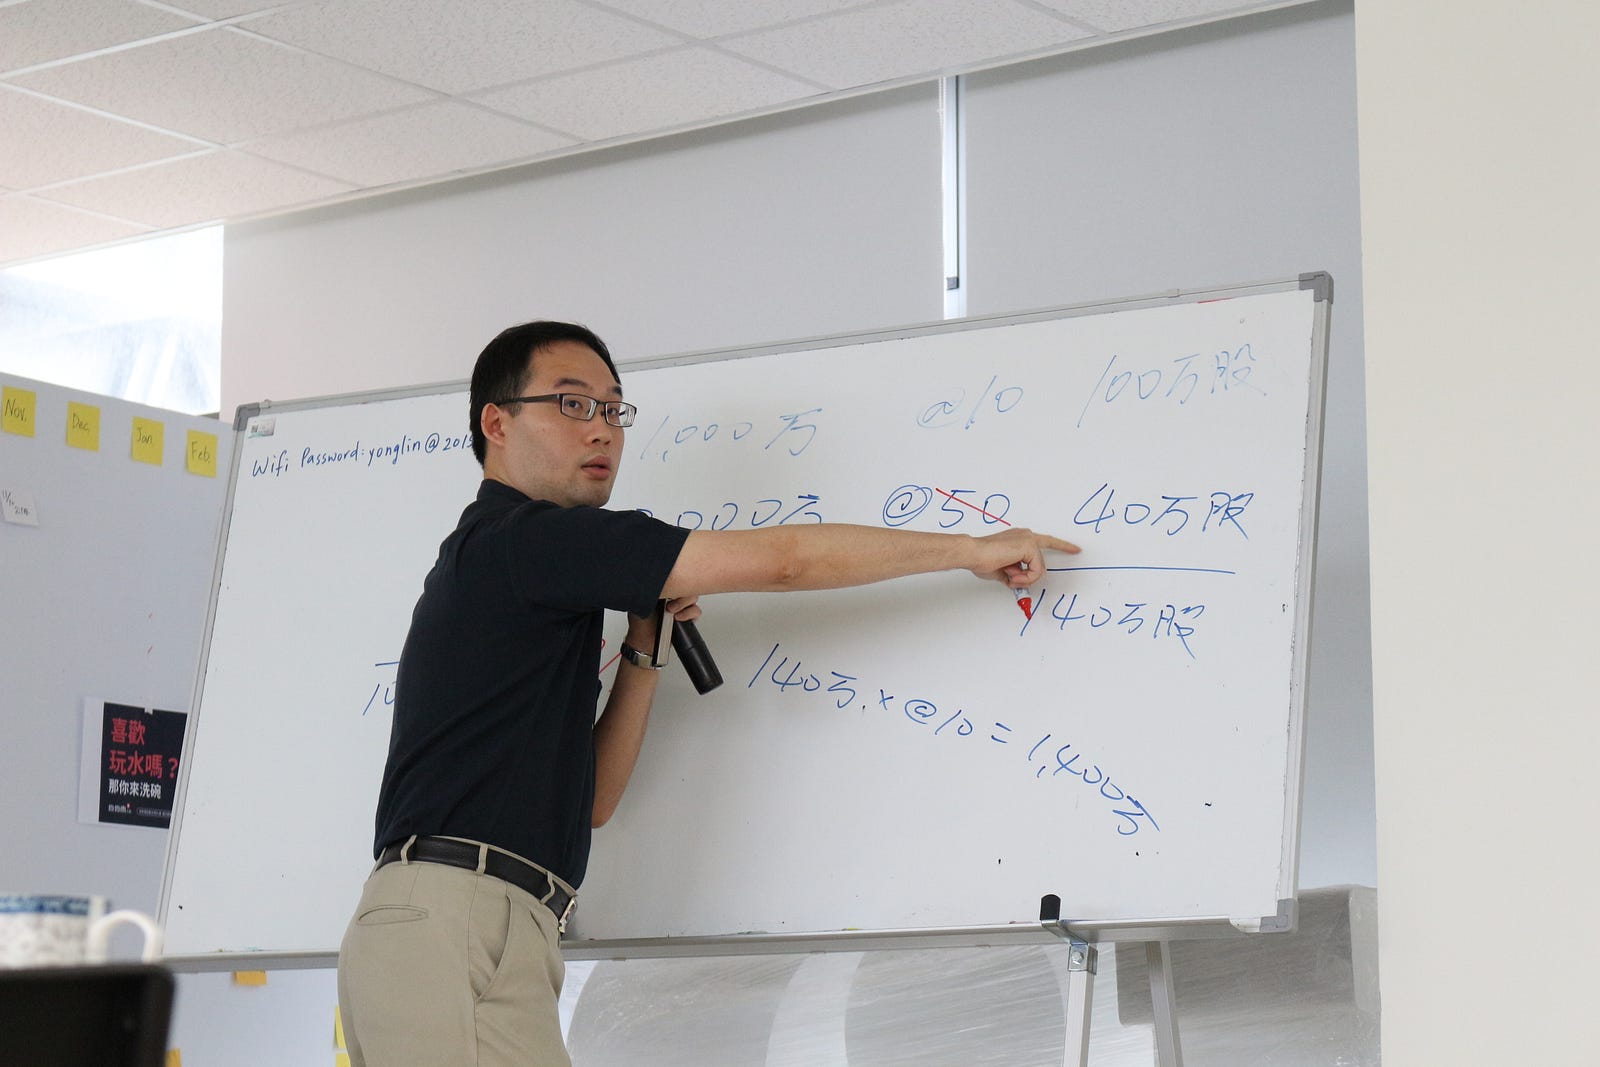 Nov.
Dec.
Jan.
Feb.
Wifi Password:yonglin@2015
1,000万 @10 100万股
,000万 @50 40万股
140万股
140万 × @10 = 1,400万
10
喜歡
玩水嗎？
那你來洗碗